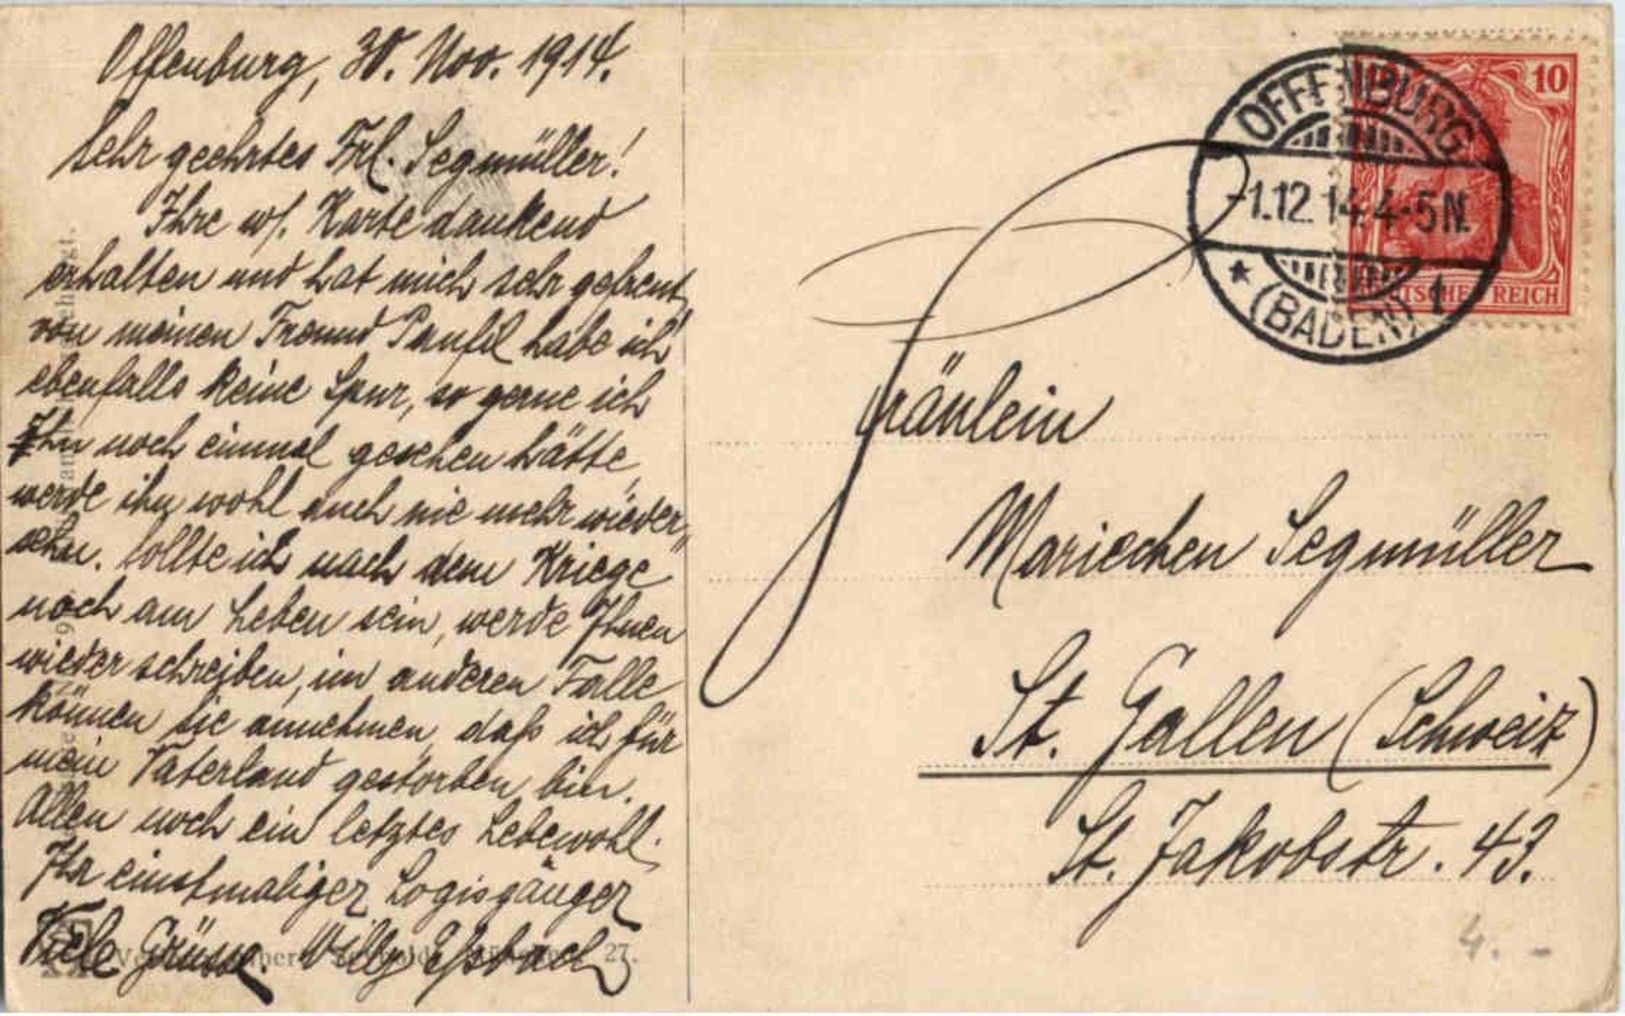 Offenburg, 30. Nov. 1914.
Sehr geehrtes Frl. Segmüller!
Ihre w/. Karte dankend
erhalten und hat mich sehr gefreut,
von meinen Freund habe ich
ebenfalls keine Spur, so gerne ich
Ihn noch einmal gesehen hätte,
werde ihn wohl auch nie mehr wieder
sehn. Sollte ich nach dem Kriege
noch am Leben sein, werde Ihnen
wieder schreiben, im anderen Falle
können sie annehmen, daß ich für
mein Vaterland gestorben bin.
Allen noch ein letztes Lebewohl.
Ihr einstmaliger Logisgänger
Viele Grüsse. Willy Eßbach
27.
OFFENBURG
-1.12.14.4-5N.
* (BADEN) 1
10
DEUTSCHES REICH
Fräulein
Mariechen Segmüller
St. Gallen (Schweiz)
St. Jakobstr. 43.
4. -